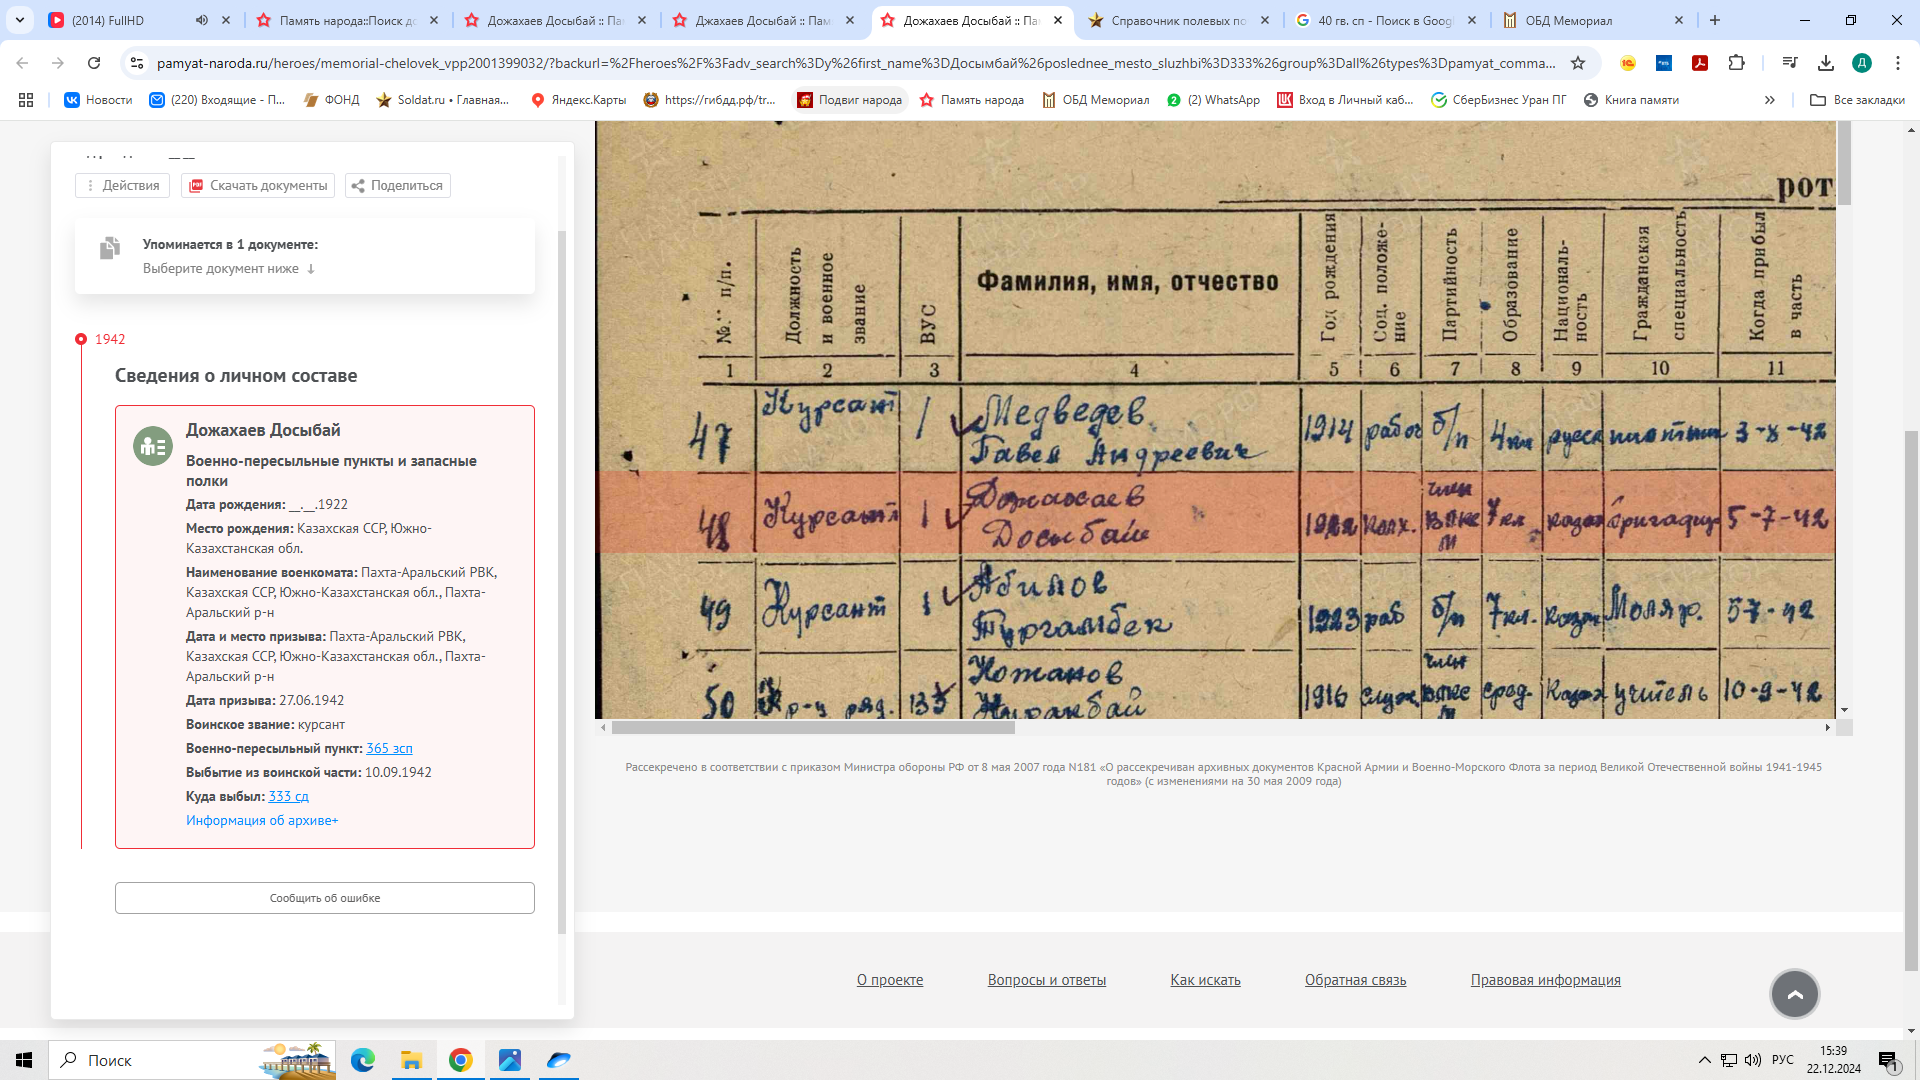 (2014) FullHD
Память народа::Поиск до
Дожахаев Досыбай :: Па
Джахаев Досыбай :: Пам
Дожахаев Досыбай :: Па
Справочник полевых по
40 гв. сп - Поиск в Goog
ОБД Мемориал
pamyat-naroda.ru/heroes/memorial-chelovek_vpp2001399032/?backurl=%2Fheroes%2F%3Fadv_search%3Dy%26first_name%3DДосымбай%26poslednee_mesto_sluzhbi%3D333%26group%3Dall%26types%3Dpamyat_comma...
Новости
(220) Входящие - П...
ФОНД
Soldat.ru • Главная...
Яндекс.Карты
https://гибдд.рф/tr...
Подвиг народа
Память народа
ОБД Мемориал
(2) WhatsApp
Вход в Личный каб...
СберБизнес Уран ПГ
Книга памяти
Все закладки
Действия
Скачать документы
Поделиться
Упоминается в 1 документе:
Выберите документ ниже ↓
1942
Сведения о личном составе
Дожахаев Досыбай
Военно-пересыльные пункты и запасные
полки
Дата рождения: __.__.1922
Место рождения: Казахская ССР, Южно-
Казахстанская обл.
Наименование военкомата: Пахта-Аральский РВК,
Казахская ССР, Южно-Казахстанская обл., Пахта-
Аральский р-н
Дата и место призыва: Пахта-Аральский РВК,
Казахская ССР, Южно-Казахстанская обл., Пахта-
Аральский р-н
Дата призыва: 27.06.1942
Воинское звание: курсант
Военно-пересыльный пункт: 365 зсп
Выбытие из воинской части: 10.09.1942
Куда выбыл: 333 сд
Информация об архиве+
Сообщить об ошибке
рот
№ п/п.
Должность и военное звание
ВУС
Фамилия, имя, отчество
Год рождения
Соц. положе-ние
Партийность
Образование
Националь-ность
Гражданская специальность
Когда прибыл в часть
1 2 3 4 5 6 7 8 9 10 11
47 Курсант 1 Медведев Павел Андреевич 1914 рабоч б/п 4 кл русск плотник 3-8-42
48 Курсант 1 Дожахаев Досыбай 1922 колх. член ВЛКСМ 7 кл. казах бригадир 5-7-42
49 Курсант 1 Абилов Тургамбек 1923 раб б/п 7 кл. казах Моляр. 5 7-42
50 Кр-ц ряд. 133 Кожанов 1916 служ член ВЛКСМ сред. Казах учитель 10-9-42
Рассекречено в соответствии с приказом Министра обороны РФ от 8 мая 2007 года N181 «О рассекречиван архивных документов Красной Армии и Военно-Морского Флота за период Великой Отечественной войны 1941-1945
годов» (с изменениями на 30 мая 2009 года)
О проекте
Вопросы и ответы
Как искать
Обратная связь
Правовая информация
Поиск
РУС
15:39
22.12.2024
1